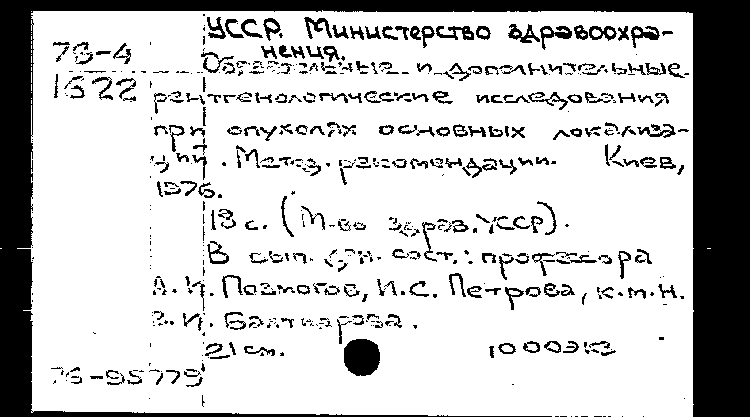 УССР. Министерство здравоохра-
нения.
78-4
Обязательные и дополнительные
1622
рентгенологические исследования
при опухолях основных локализа-
ций. Метод. рекомендации. Киев,
1976.
18 с. (М-во здрав. УССР).
В вып. сост.: профессора
А.И. Позмогов, И.С. Петрова, к.м.н.
В.И. Бахтиарова.
21 см. 1000 экз
76-95779